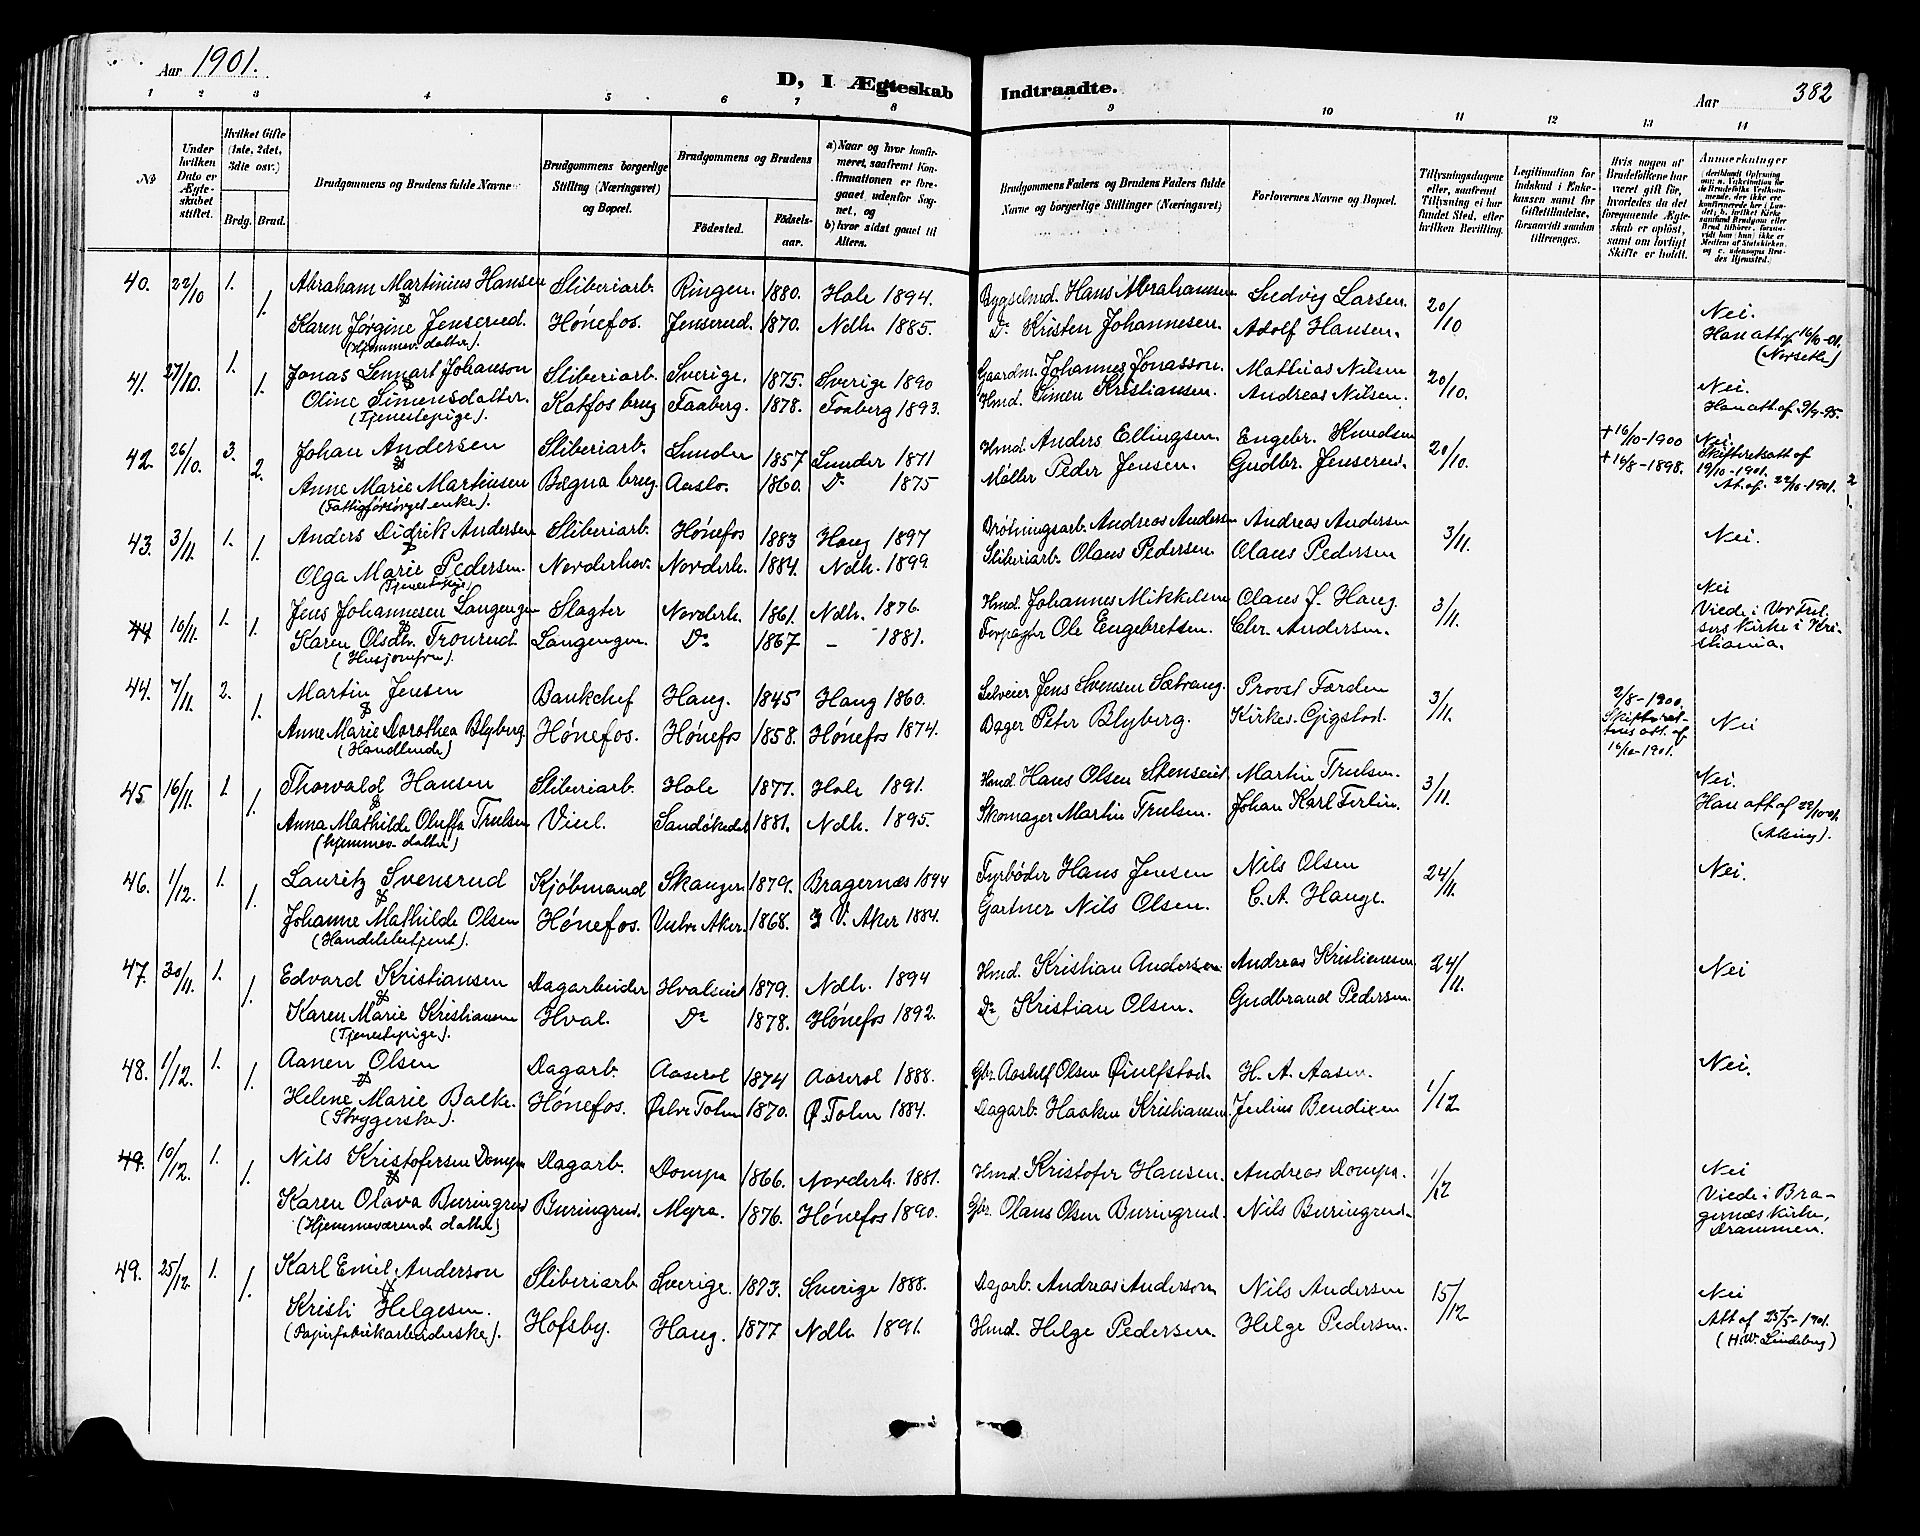 Aar 1901.
D, I Ægteskab Indtraadte.
Aar 382
1 2 3 4 5 6 7 8 9 10 11 12 13 14
No
Under hvilken Dato er Ægteskabet stiftet.
Hvilket Gifte (1ste, 2det, 3die osv.)
Brdg. Brud.
Brudgommens og Brudens fulde Navne
Brudgommens borgerlige Stilling (Næringsvei) og Bopæl.
Brudgommens og Brudens
Födested. Födselsaar.
a) Naar og hvor konfirmeret, saafremt Konfirmationen er foregaaet udenfor Sognet, og
b) hvor sidst gaaet til Alters.
Brudgommens Faders og Brudens Faders fulde Navne og borgerlige Stillinger (Næringsvei)
Forlovernes Navne og Bopæl.
Tillysningsdagene eller, saafremt Tillysning ei har fundet Sted, efter hvilken Bevilling.
Legitimation for Indskud i Enkekassen samt for Giftetilladelse, forsaavidt saadan tiltrænges.
Hvis nogen af Brudefolkene har været gift för, hvorledes da det foregaaende Ægteskab er oplöst, samt om lovligt Skifte er holdt.
Anmerkninger
40. 22/10 1. Abraham Martinius Hansen Sliberiarb. Ringen. 1880. Hole 1894. Bygselmd. Hans Abrahamsen Ludvig Larsen. 20/10 Nei.
& 1. Karen Jørgine Jenserud. Hønefos. Jenserud. 1870. Ndh. 1885. Do Kristen Johannesen. Adolf Hansen. Han att af 16/10-01.
(Hjemmev. datter). (Norseth)
41. 27/10. 1. Jonas Lennart Johanson Sliberiarb. Sverige. 1875. Sverige 1890 Gaardm. Johannes Jonasson. Mathias Nilsen 20/10. Nei.
& 1. Oline Simensdatter. Katfos brug Faaberg. 1878. Faaberg 1893. Hmd. Simen Kristiansen. Andreas Nilsen. Han att. af 9/9-95.
(Tjenestepige).
42. 26/10. 3. Johan Andersen Sliberiarb. Lunder 1857 Lunder 1871 Hmd. Anders Ellingsen. Engebr. Knudsen 20/10. +16/10-1900 Nei.
& 2. Anne Marie Martinsen Bægna brug. Aaslo. 1860. Do 1875 Møller Peder Jensen. Gudbr. Jenserud. +16/8-1898. Skifteretsatt af 19/10-1901.
(Fattigforsørget enke) At. af. 22/10-1901.
43. 3/11. 1. Anders Didrik Andersen Sliberiarb. Hønefos 1883 Haug 1897 Brøtningsarb. Andreas Andersen Andreas Andersen 3/11. Nei.
& 1. Olga Marie Pedersen. Norderhov. Norderh. 1884. Ndh. 1899. Sliberiarb. Olaus Pedersen. Olaus Pedersen
(Tjenestepige)
44 10/11. 1. Jens Johannesen Langengen Slagter Norderh. 1861. Ndh. 1876. Hmd. Johannes Mikkelsen Olaus J. Haug. 3/11. Nei
& 1. Karen Olsdtr. Tronrud. Langengen. Do 1867 – 1881. Forpagter Ole Engebretsen. Chr. Andersen. Viede i Vor Frelsers Kirke i Kristiania.
(Husjomfru).
44. 7/11. 2. Martin Jensen Bankchef Haug. 1845 Haug 1860. Selveier Jens Svensen Sætrang. Provst Færden 3/11. 2/8-1900. Nei
& 1. Anne Marie Dorothea Blyberg Hønefos. Hønefos 1858. Hønefos 1874. Bager Peter Blyberg. Kirkes. Gigstad. Skifteret- att. af 16/10-1901.
(Handlende)
45. 16/11. 1. Thorvald Hansen Sliberiarb. Hole 1877. Hole 1891. Hmd. Hans Olsen Stenseiet Martin Trulsen. 3/11. Nei.
& 1. Anna Mathilde Oluffa Trulsen Viul. Sandøkedal 1881. Ndh. 1895. Skomager Martin Trulsen. Johan Karl Ferlin. Han att af 22/10 01.
(hjemmev. datter)
46. 1/12. 1. Lauritz Svensrud Kjøbmand Skanger 1879. Bragernæs 1894 Fyrbøder Hans Jensen Nils Olsen 24/11. Nei.
& 1. Johanne Mathilde Olsen Hønefos. Vestre Aker. 1868. V. Aker 1884. Gartner Nils Olsen. C. A. Hauge.
(Handelsbetjent).
47. 30/11. 1. Edvard Kristiansen Dagarbeider Hvalseiet 1879. Ndh. 1894 Hmd. Kristian Andersen Andreas Kristiansen 24/11. Nei
& 1. Karen Marie Kristiansen Hval. Do 1878. Hønefos 1892. Do Kristian Olsen. Gudbrand Pedersen.
(Tjenestepige).
48. 1/12. 1. Aanen Olsen Dagarb. Aaserol 1874 Aaserol 1888. Gbr. Aastulf Olsen Øiulfstad. H. A. Aasen. 1/12 Nei.
& 1. Helene Marie Balke. Hønefos. Østre Toten 1870. Ø. Toten 1884. Dagarb. Haaken Kristiansen. Julius Bendixen
(Strygerske).
49. 10/12. 1. Nils Kristofersen Dompa Dagarb. Dompa 1866. Norderh. 1881. Hmd. Kristofer Hansen. Andreas Dompa. 1/12 Nei
& 1. Karen Olava Buringrud Buringrud. Myra. 1876. Hønefos 1890. Gbr. Olaus Olsen Buringrud. Nils Buringrud. Viede i Bragernæs Kirke, Drammen.
(Hjemmeværende datter)
49. 25/12. 1. Karl Emil Anderson Sliberiarb Sverige. 1873. Sverige 1888. Dagarb. Andreas Anderson Nils Andersen 15/12 Nei
& 1. Kristi Helgesen. Hofsby. Haug. 1877 Ndh. 1891. Hmd. Helge Pedersen. Helge Pedersen. Att af 25/5-1901.
(Papirfabrikarbeiderske). (H.W. Lindeberg)